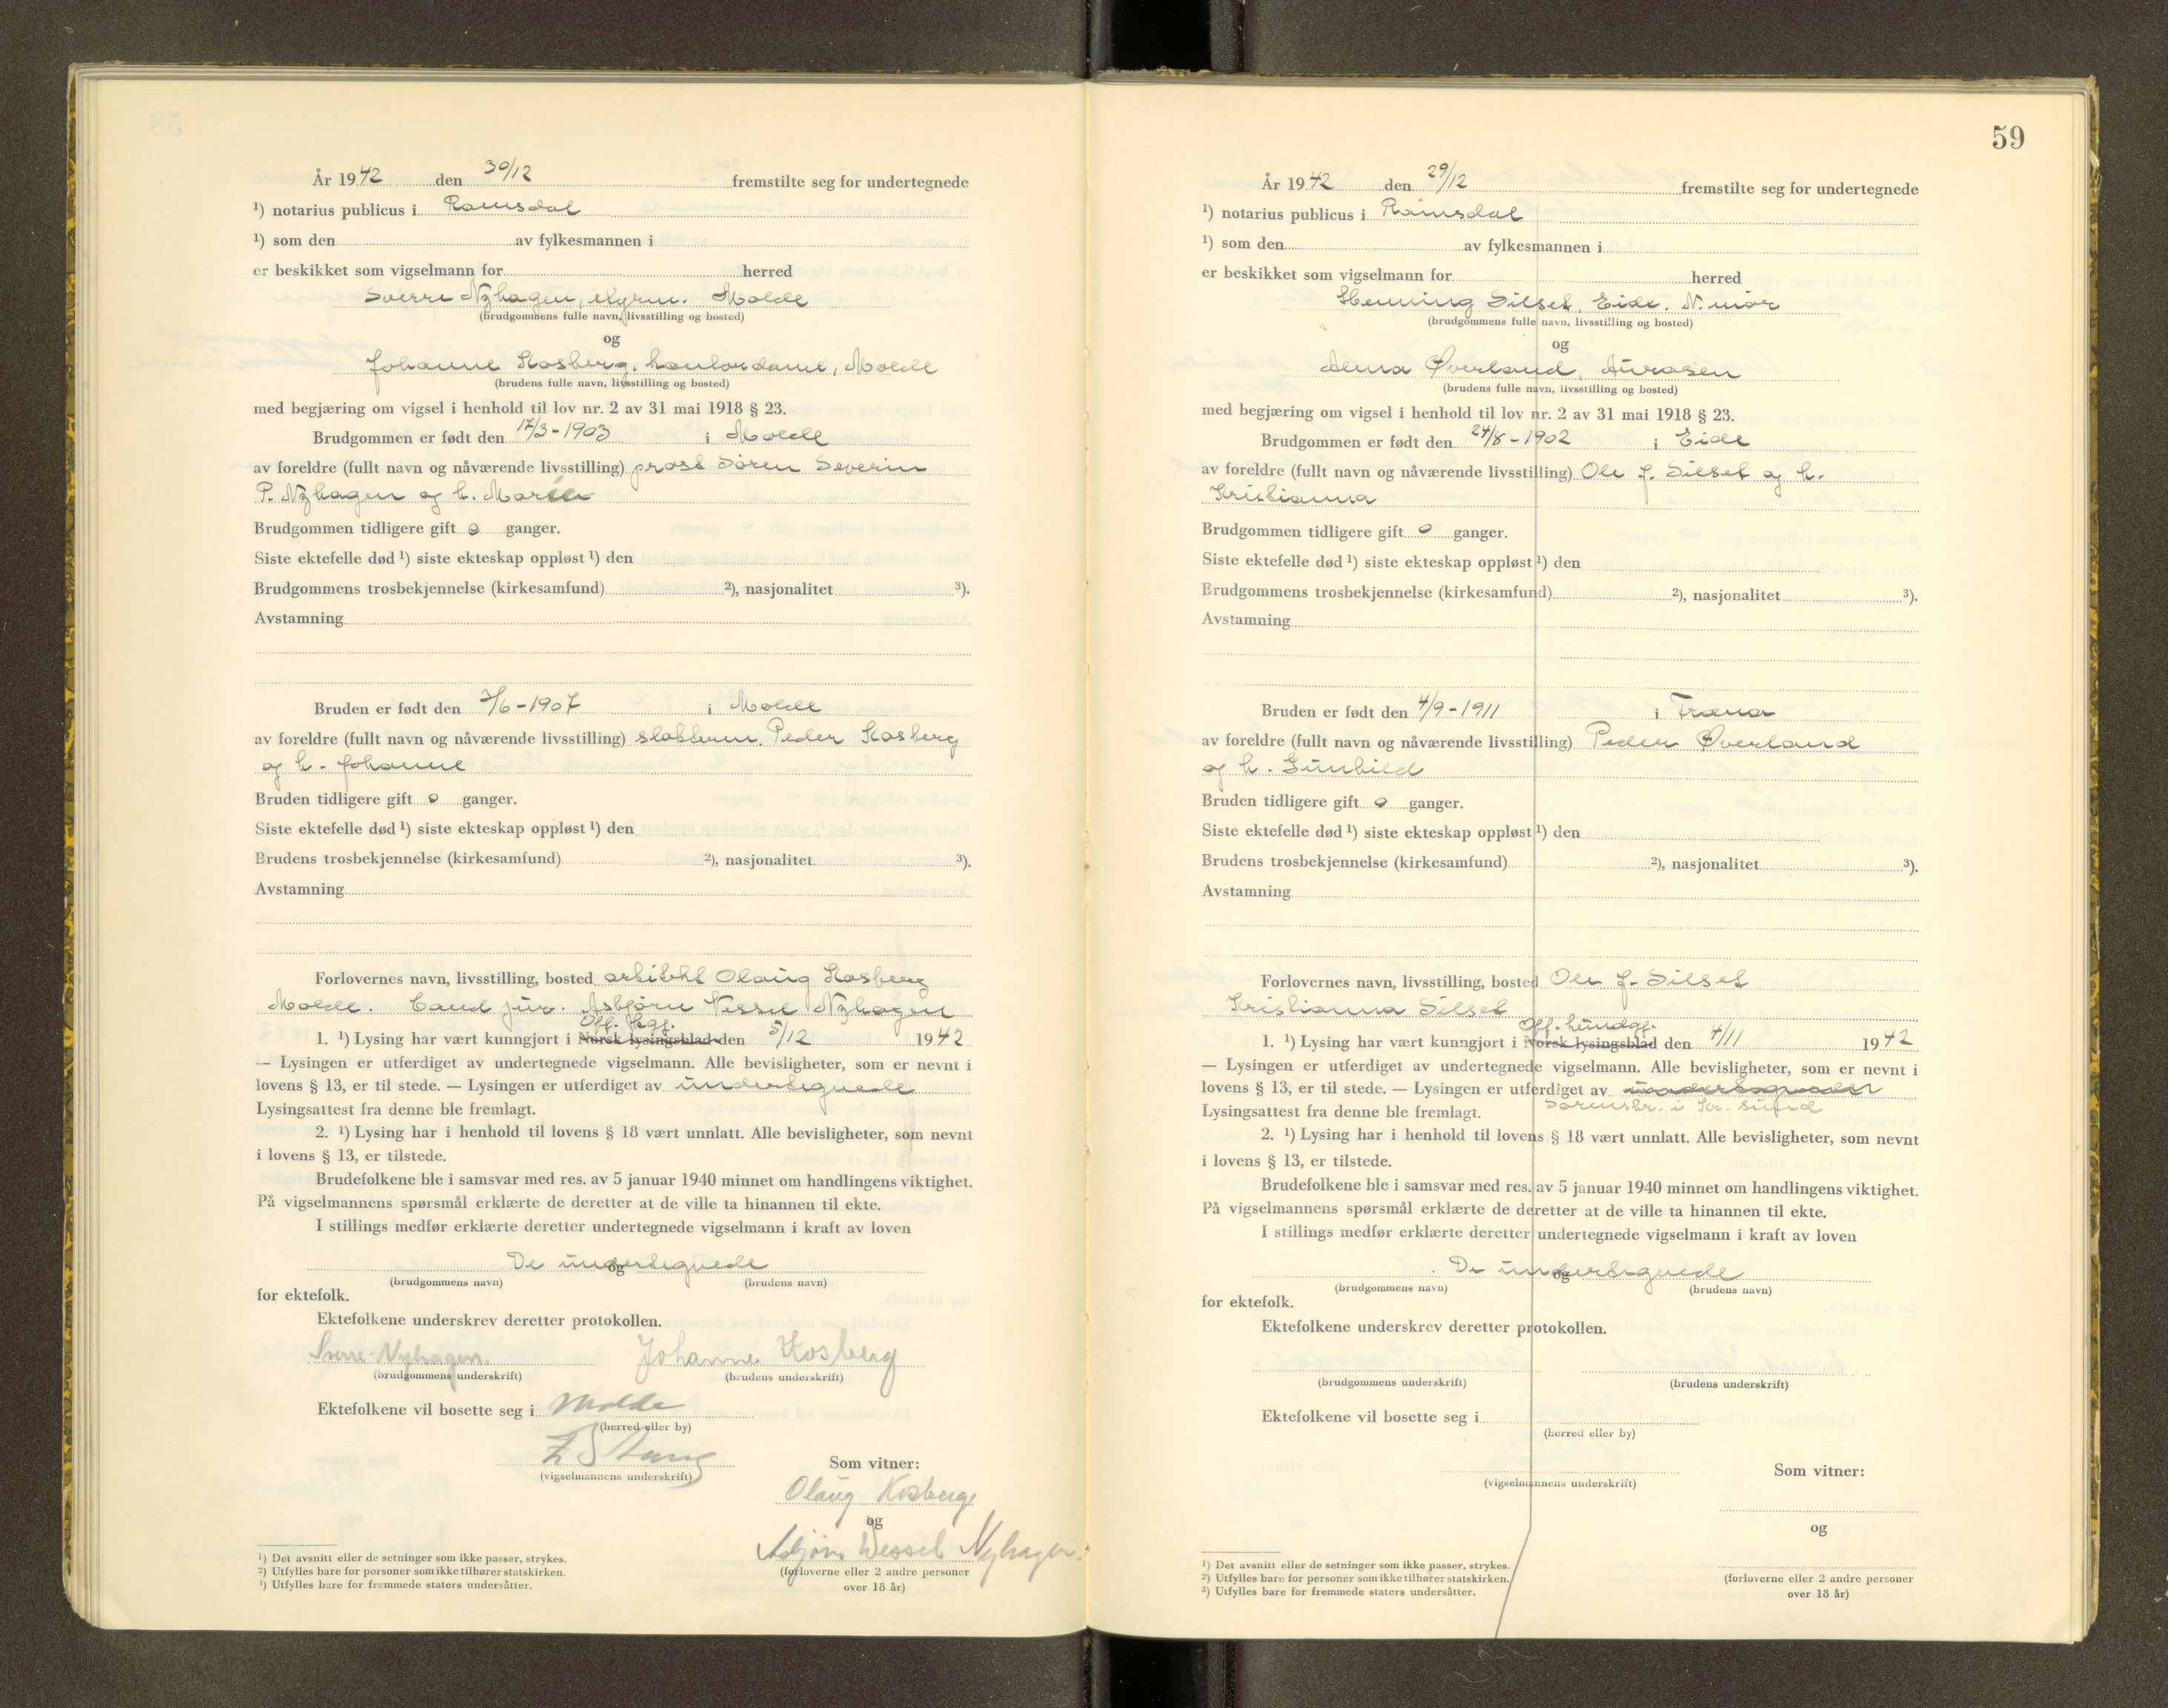 År 1942 den 30/12 fremstilte seg for undertegnede
¹) notarius publicus i Romsdal
¹) som den av fylkesmannen i
er beskikket som vigselmann for herred
Sverre Nyhagen, styrm. Molde
(brudgommens fulle navn, livsstilling og bosted)
og
Johanne Kosberg, kontordame, Molde
(brudens fulle navn, livsstilling og bosted)
med begjæring om vigsel i henhold til lov nr. 2 av 31 mai 1918 § 23.
Brudgommen er født den 17/3-1903 i Molde
av foreldre (fullt navn og nåværende livsstilling) prost Søren Severin
P. Nyhagen og h.
Brudgommen tidligere gift 0 ganger.
Siste ektefelle død ¹) siste ekteskap oppløst ¹) den
Brudgommens trosbekjennelse (kirkesamfund) ²), nasjonalitet ³).
Avstamning
Bruden er født den /6-1907 i Molde
av foreldre (fullt navn og nåværende livsstilling) Peder Kosberg
og h. Johanne
Bruden tidligere gift 0 ganger.
Siste ektefelle død ¹) siste ekteskap oppløst ¹) den
Brudens trosbekjennelse (kirkesamfund) ²), nasjonalitet ³).
Avstamning
Forlovernes navn, livsstilling, bosted arkitekt Olaug Kosberg
Molde. Cand jur. Asbjørn Wessel Nyhagen
Off. kgj.
1. ¹) Lysing har vært kunngjort i Norsk lysingsblad den 5/12 1942
— Lysingen er utferdiget av undertegnede vigselmann. Alle bevisligheter, som er nevnt i
lovens § 13, er til stede. — Lysingen er utferdiget av undertegnede
Lysingsattest fra denne ble fremlagt.
2. ¹) Lysing har i henhold til lovens § 18 vært unnlatt. Alle bevisligheter, som nevnt
i lovens § 13, er tilstede.
Brudefolkene ble i samsvar med res. av 5 januar 1940 minnet om handlingens viktighet.
På vigselmannens spørsmål erklærte de deretter at de ville ta hinannen til ekte.
I stillings medfør erklærte deretter undertegnede vigselmann i kraft av loven
De undertegnede
og
(brudgommens navn) (brudens navn)
for ektefolk.
Ektefolkene underskrev deretter protokollen.
Sverre Nyhagen. Johanne Kosberg
(brudgommens underskrift) (brudens underskrift)
Ektefolkene vil bosette seg i Molde
(herred eller by)
(vigselmannens underskrift)
Som vitner:
Olaug Kosberg
og
Asbjørn Wessel Nyhagen.
(forloverne eller 2 andre personer
over 18 år)
¹) Det avsnitt eller de setninger som ikke passer, strykes.
²) Utfylles bare for personer som ikke tilhører statskirken.
³) Utfylles bare for fremmede staters undersåtter.
59
År 1942 den 29/12 fremstilte seg for undertegnede
¹) notarius publicus i Romsdal
¹) som den av fylkesmannen i
er beskikket som vigselmann for herred
Henning Silset, Eide. N.mør
(brudgommens fulle navn, livsstilling og bosted)
og
Alma Øverland, Aurosen
(brudens fulle navn, livsstilling og bosted)
med begjæring om vigsel i henhold til lov nr. 2 av 31 mai 1918 § 23.
Brudgommen er født den 24/8-1902 i Eide
av foreldre (fullt navn og nåværende livsstilling) Ole J. Silset og h.
Kristianna
Brudgommen tidligere gift 0 ganger.
Siste ektefelle død ¹) siste ekteskap oppløst ¹) den
Brudgommens trosbekjennelse (kirkesamfund) ²), nasjonalitet ³).
Avstamning
Bruden er født den 4/9-1911 i Fræna
av foreldre (fullt navn og nåværende livsstilling) Peder Øverland
og h. Gunhild
Bruden tidligere gift 0 ganger.
Siste ektefelle død ¹) siste ekteskap oppløst ¹) den
Brudens trosbekjennelse (kirkesamfund) ²), nasjonalitet ³).
Avstamning
Forlovernes navn, livsstilling, bosted Ole J. Silset
Kristianna Silset
Off. kundgj.
1. ¹) Lysing har vært kunngjort i Norsk lysingsblad den 4/11 1942
— Lysingen er utferdiget av undertegnede vigselmann. Alle bevisligheter, som er nevnt i
lovens § 13, er til stede. — Lysingen er utferdiget av undertegnede
Sorenskr. i Kr. sund
Lysingsattest fra denne ble fremlagt.
2. ¹) Lysing har i henhold til lovens § 18 vært unnlatt. Alle bevisligheter, som nevnt
i lovens § 13, er tilstede.
Brudefolkene ble i samsvar med res. av 5 januar 1940 minnet om handlingens viktighet.
På vigselmannens spørsmål erklærte de deretter at de ville ta hinannen til ekte.
I stillings medfør erklærte deretter undertegnede vigselmann i kraft av loven
De undertegnede
og
(brudgommens navn) (brudens navn)
for ektefolk.
Ektefolkene underskrev deretter protokollen.
(brudgommens underskrift) (brudens underskrift)
Ektefolkene vil bosette seg i
(herred eller by)
(vigselmannens underskrift)
Som vitner:
og
(forloverne eller 2 andre personer
over 18 år)
¹) Det avsnitt eller de setninger som ikke passer, strykes.
²) Utfylles bare for personer som ikke tilhører statskirken.
³) Utfylles bare for fremmede staters undersåtter.